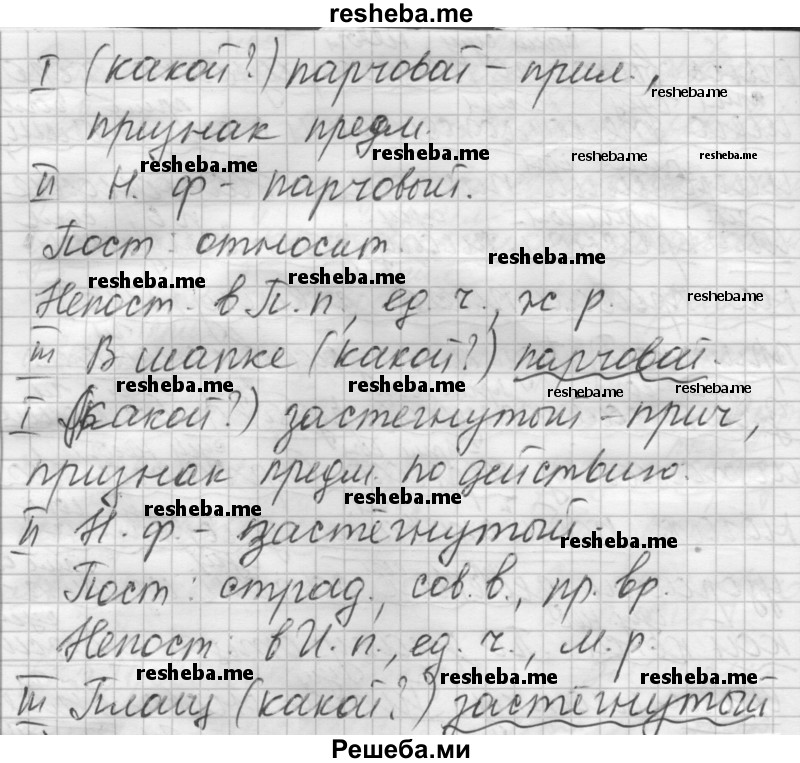 resheba.me
I (какой?) парчовой - прил.,
resheba.me
признак предм.
resheba.me resheba.me resheba.me resheba.me
II Н. ф - парчовый.
Пост: относит.
resheba.me
resheba.me resheba.me resheba.me
Непост. в П. п., ед. ч., ж р.
III В шапке (какой?) парчовой.
resheba.me resheba.me resheba.me resheba.me
I (какой?) застегнутый - прич,
признак предм. по действию.
resheba.me resheba.me
II Н. ф. - застёгнутый.
resheba.me
Пост: страд., сов. в., пр. вр.
Непост: в И. п., ед. ч., м. р.
resheba.me resheba.me resheba.me
III Плащ (какой?) застёгнутый
Решеба.ми